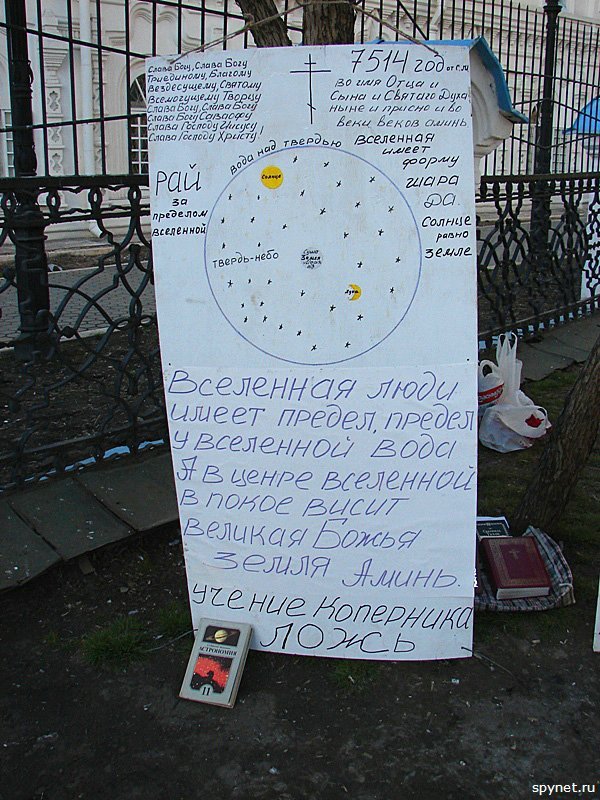 Слава Богу, Слава Богу
Триединому, Благому
Вездесущему, Святому
Всемогущему Творцу
Слава Богу, Слава Богу
Слава Богу Саваофу
Слава Господу Иисусу
Слава Господу Христу!
7514 год от С.М
Во имя Отца и
Сына и Святого Духа
ныне и присно и во
веки веков аминь
Вода над твердью
Вселенная
имеет
форму
шара
да.
Солнце
равно
земле
Рай
за
пределом
вселенной
Солнце
твердь-небо
Земля
Луна
Вселенная люди
имеет предел, предел
у вселенной вода
А в ценре вселенной
в покое висит
великая Божья
Земля Аминь.
учение Коперника
ложь
АСТРОНОМИЯ
11
spynet.ru